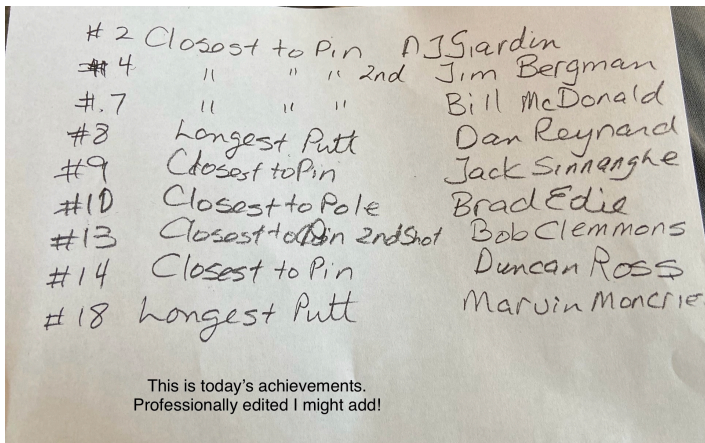 # 2 Closest to Pin DJ Giardin
# 4 " " " 2nd Jim Bergman
#.7 " " " Bill McDonald
#8 Longest Putt Dan Reynard
#9 Closest to Pin Jack Sinnanghe
#10 Closest to Pole Brad Edie
#13 Closest to Pin 2nd Shot Bob Clemmons
#14 Closest to Pin Duncan Ross
#18 Longest Putt Marvin Moncrie
This is today's achievements.
Professionally edited I might add!